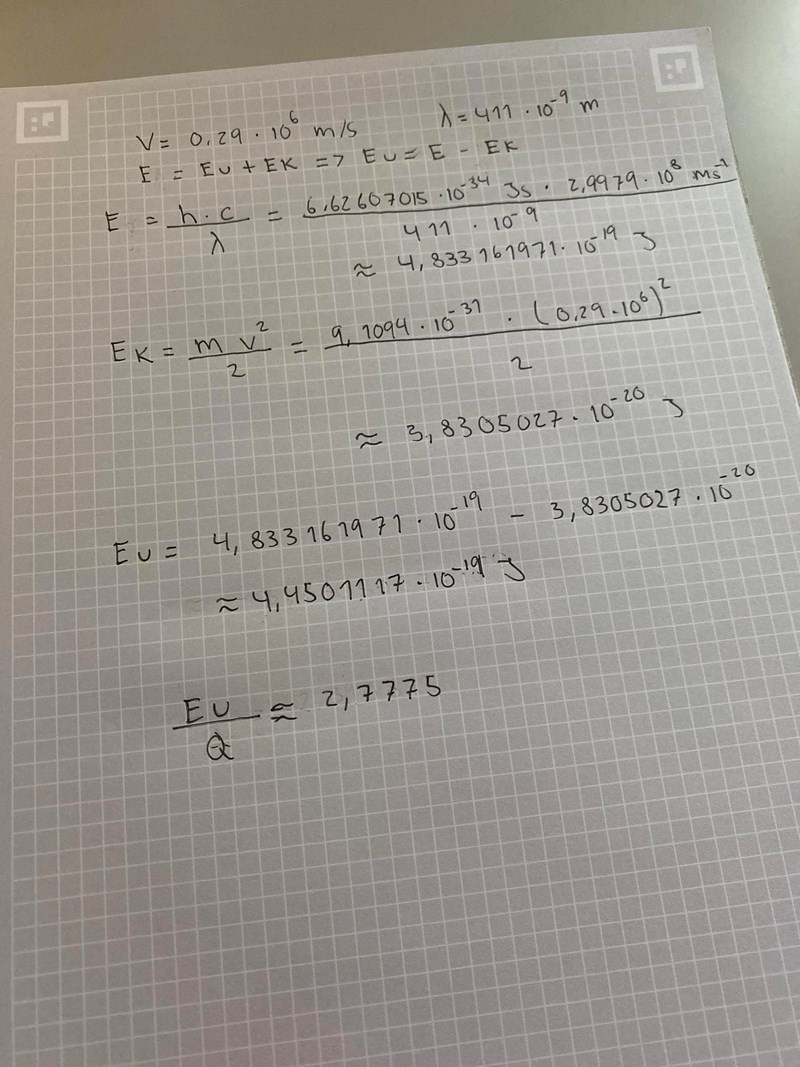 V = 0,29 · 10⁶ m/s λ = 411 · 10⁻⁹ m
E = EU + EK => EU = E - EK
E = h · c / λ = 6,62607015 · 10⁻³⁴ Js · 2,9979 · 10⁸ ms⁻¹ / 411 · 10⁻⁹
≈ 4,833161971 · 10⁻¹⁹ J
EK = m v² / 2 = 9,1094 · 10⁻³¹ · (0,29 · 10⁶)² / 2
≈ 3,8305027 · 10⁻²⁰ J
EU = 4,833161971 · 10⁻¹⁹ - 3,8305027 · 10⁻²⁰
≈ 4,4501117 · 10⁻¹⁹ J
EU / Q ≈ 2,7775